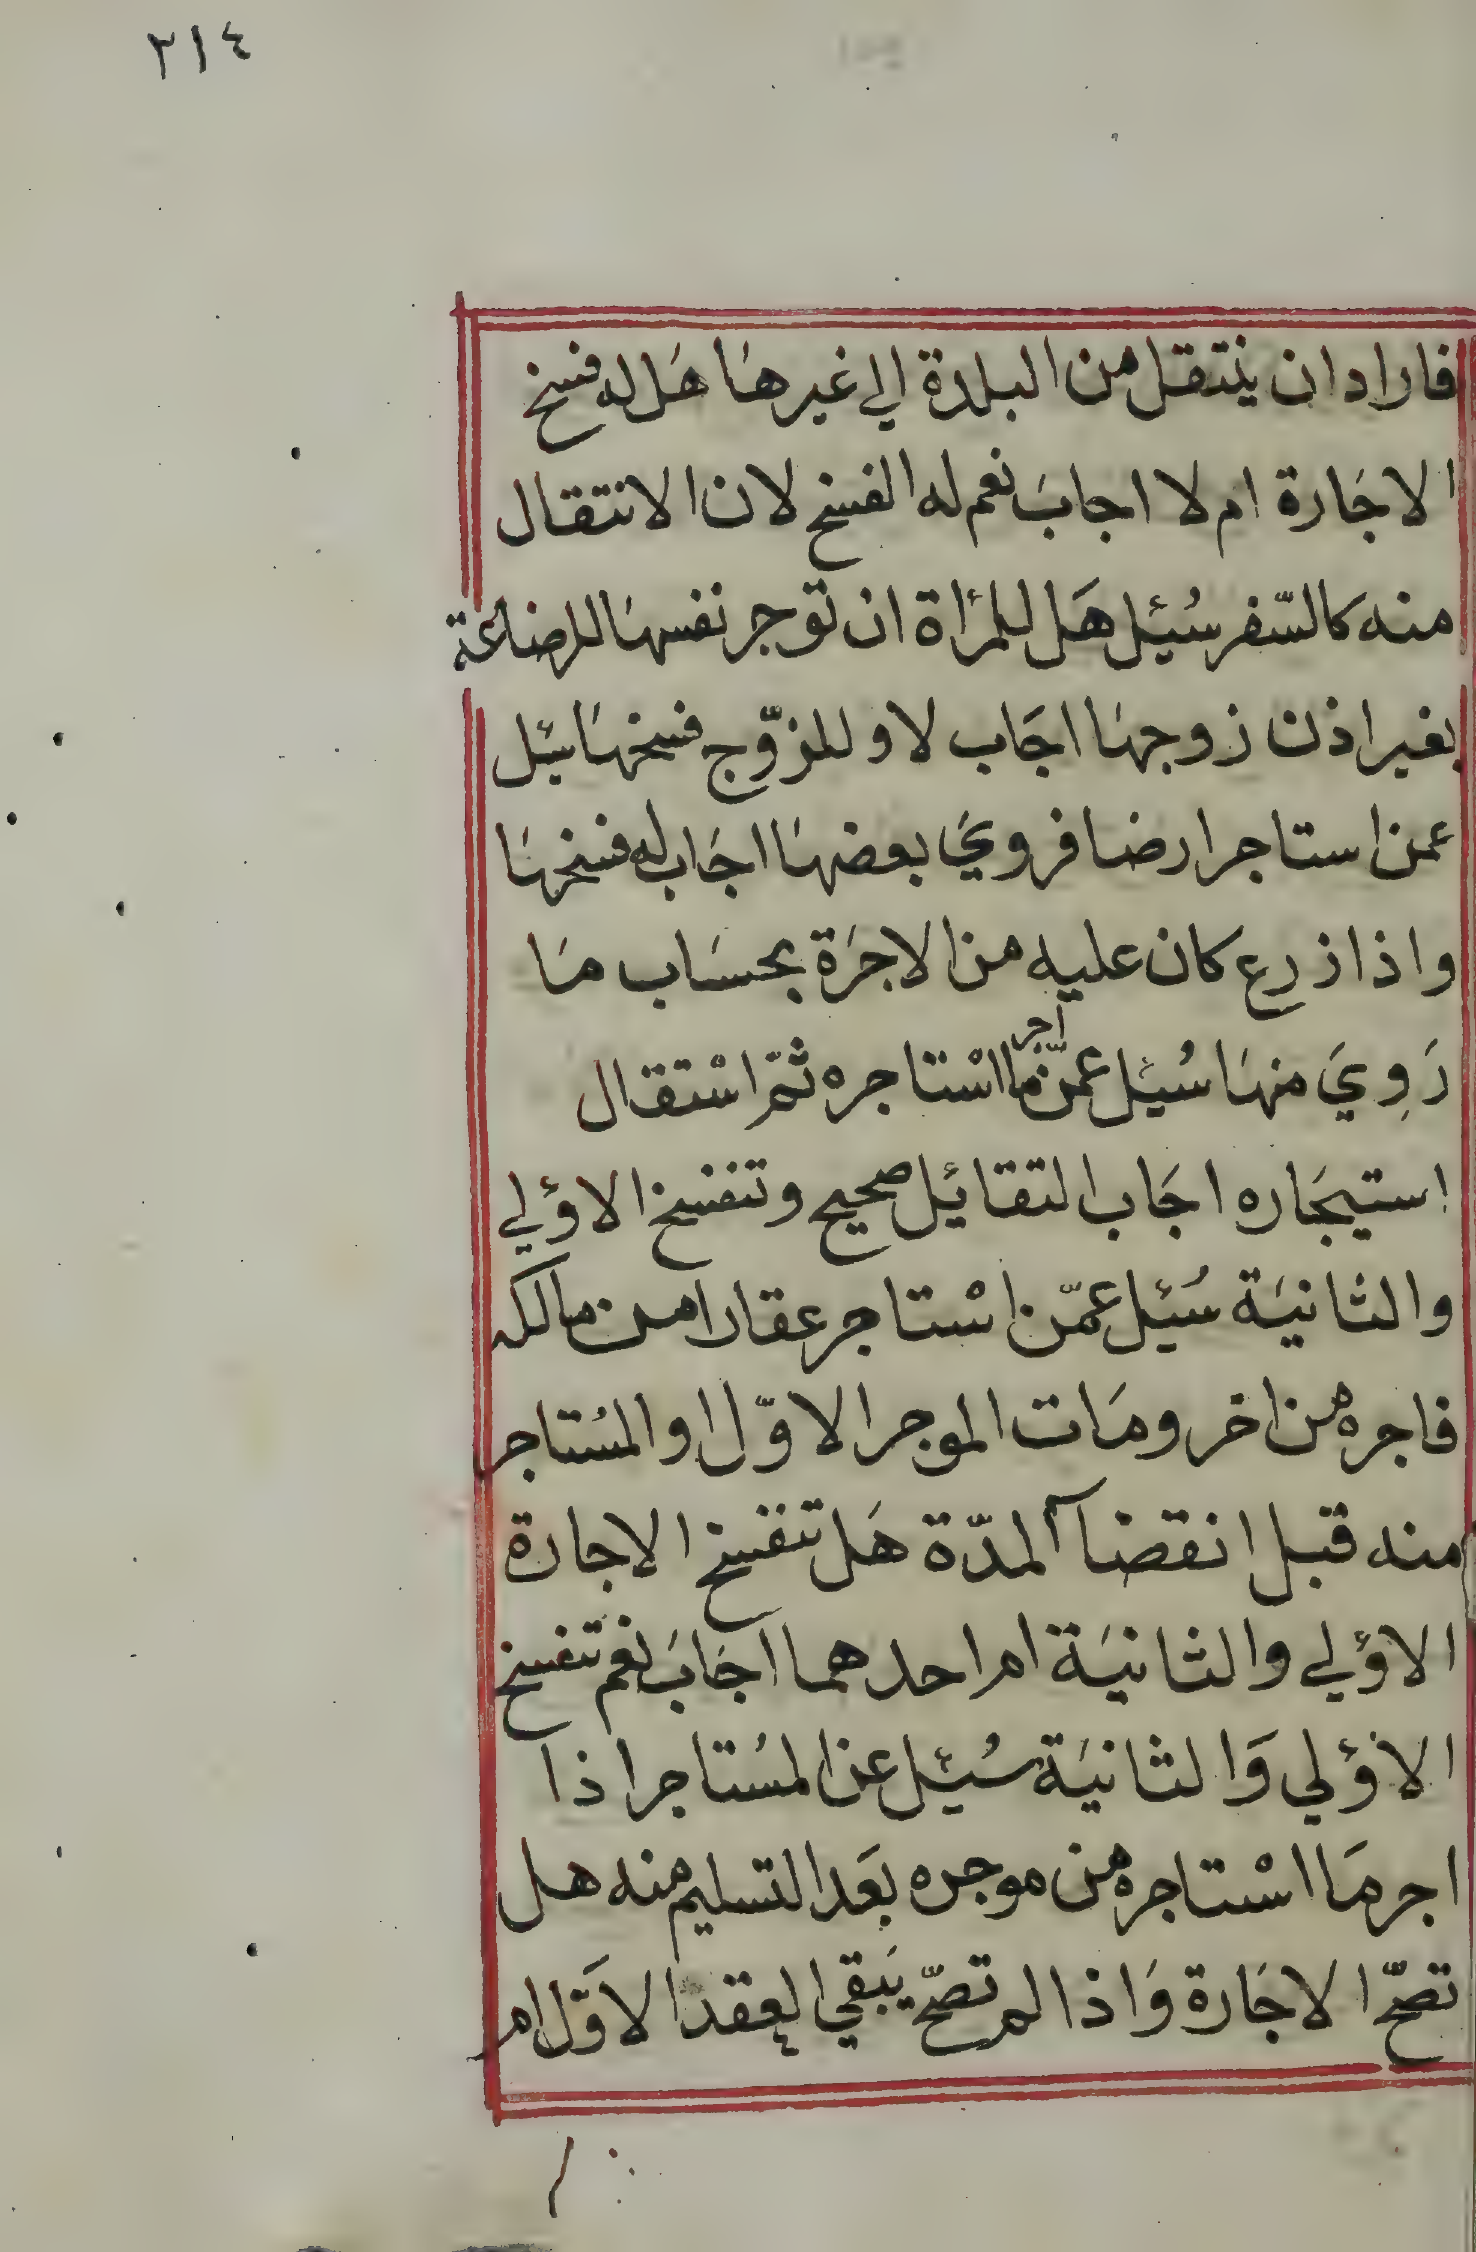 ٢١٤
فاراد ان ينتقل من البلدة الي غيرها هَل له فسخ
الاجَارة ام لا اجابَ نعم له الفسخ لان الانتقال
منه كالسّفر سُئِل هَل للمرأة ان توجر نفسهَا للرضاعة
بغير اذن زوجهَا اجَاب لا وللزوّج فسخهَا سئِل
عمن استاجر ارضا فرويَ بعضهَا اجَاب له فسخهَا
واذا زرع كان عليه من الاجرَة بحسَاب مَا
رَوِيَ منهَا سُئِل عمّن اجر ما اسْتاجره ثمّ اسْتقال
استيجَاره اجَاب التقائِل صحيح وتنفسخ الاؤلي
والثانيَة سُئِل عمّن اسْتاجر عقارا من مالكه
فاجره من اخر ومَات الموجر الاوّل او المسُتاجر
منه قبل انقضآ المدّة هَل تنفسخ الاجارة
الاؤلي والثانيَة ام احدهما اجَابَ نعَم تنفسخ
الاؤلي وَالثانيَة سُئِل عن المسُتاجر اذا
اجر مَا اسْتاجره من موجره بَعدَ التسليم منه هل
تصحّ الاجَارة وَاذا لم تصحّ يَبقي العقد الاوَّل ام